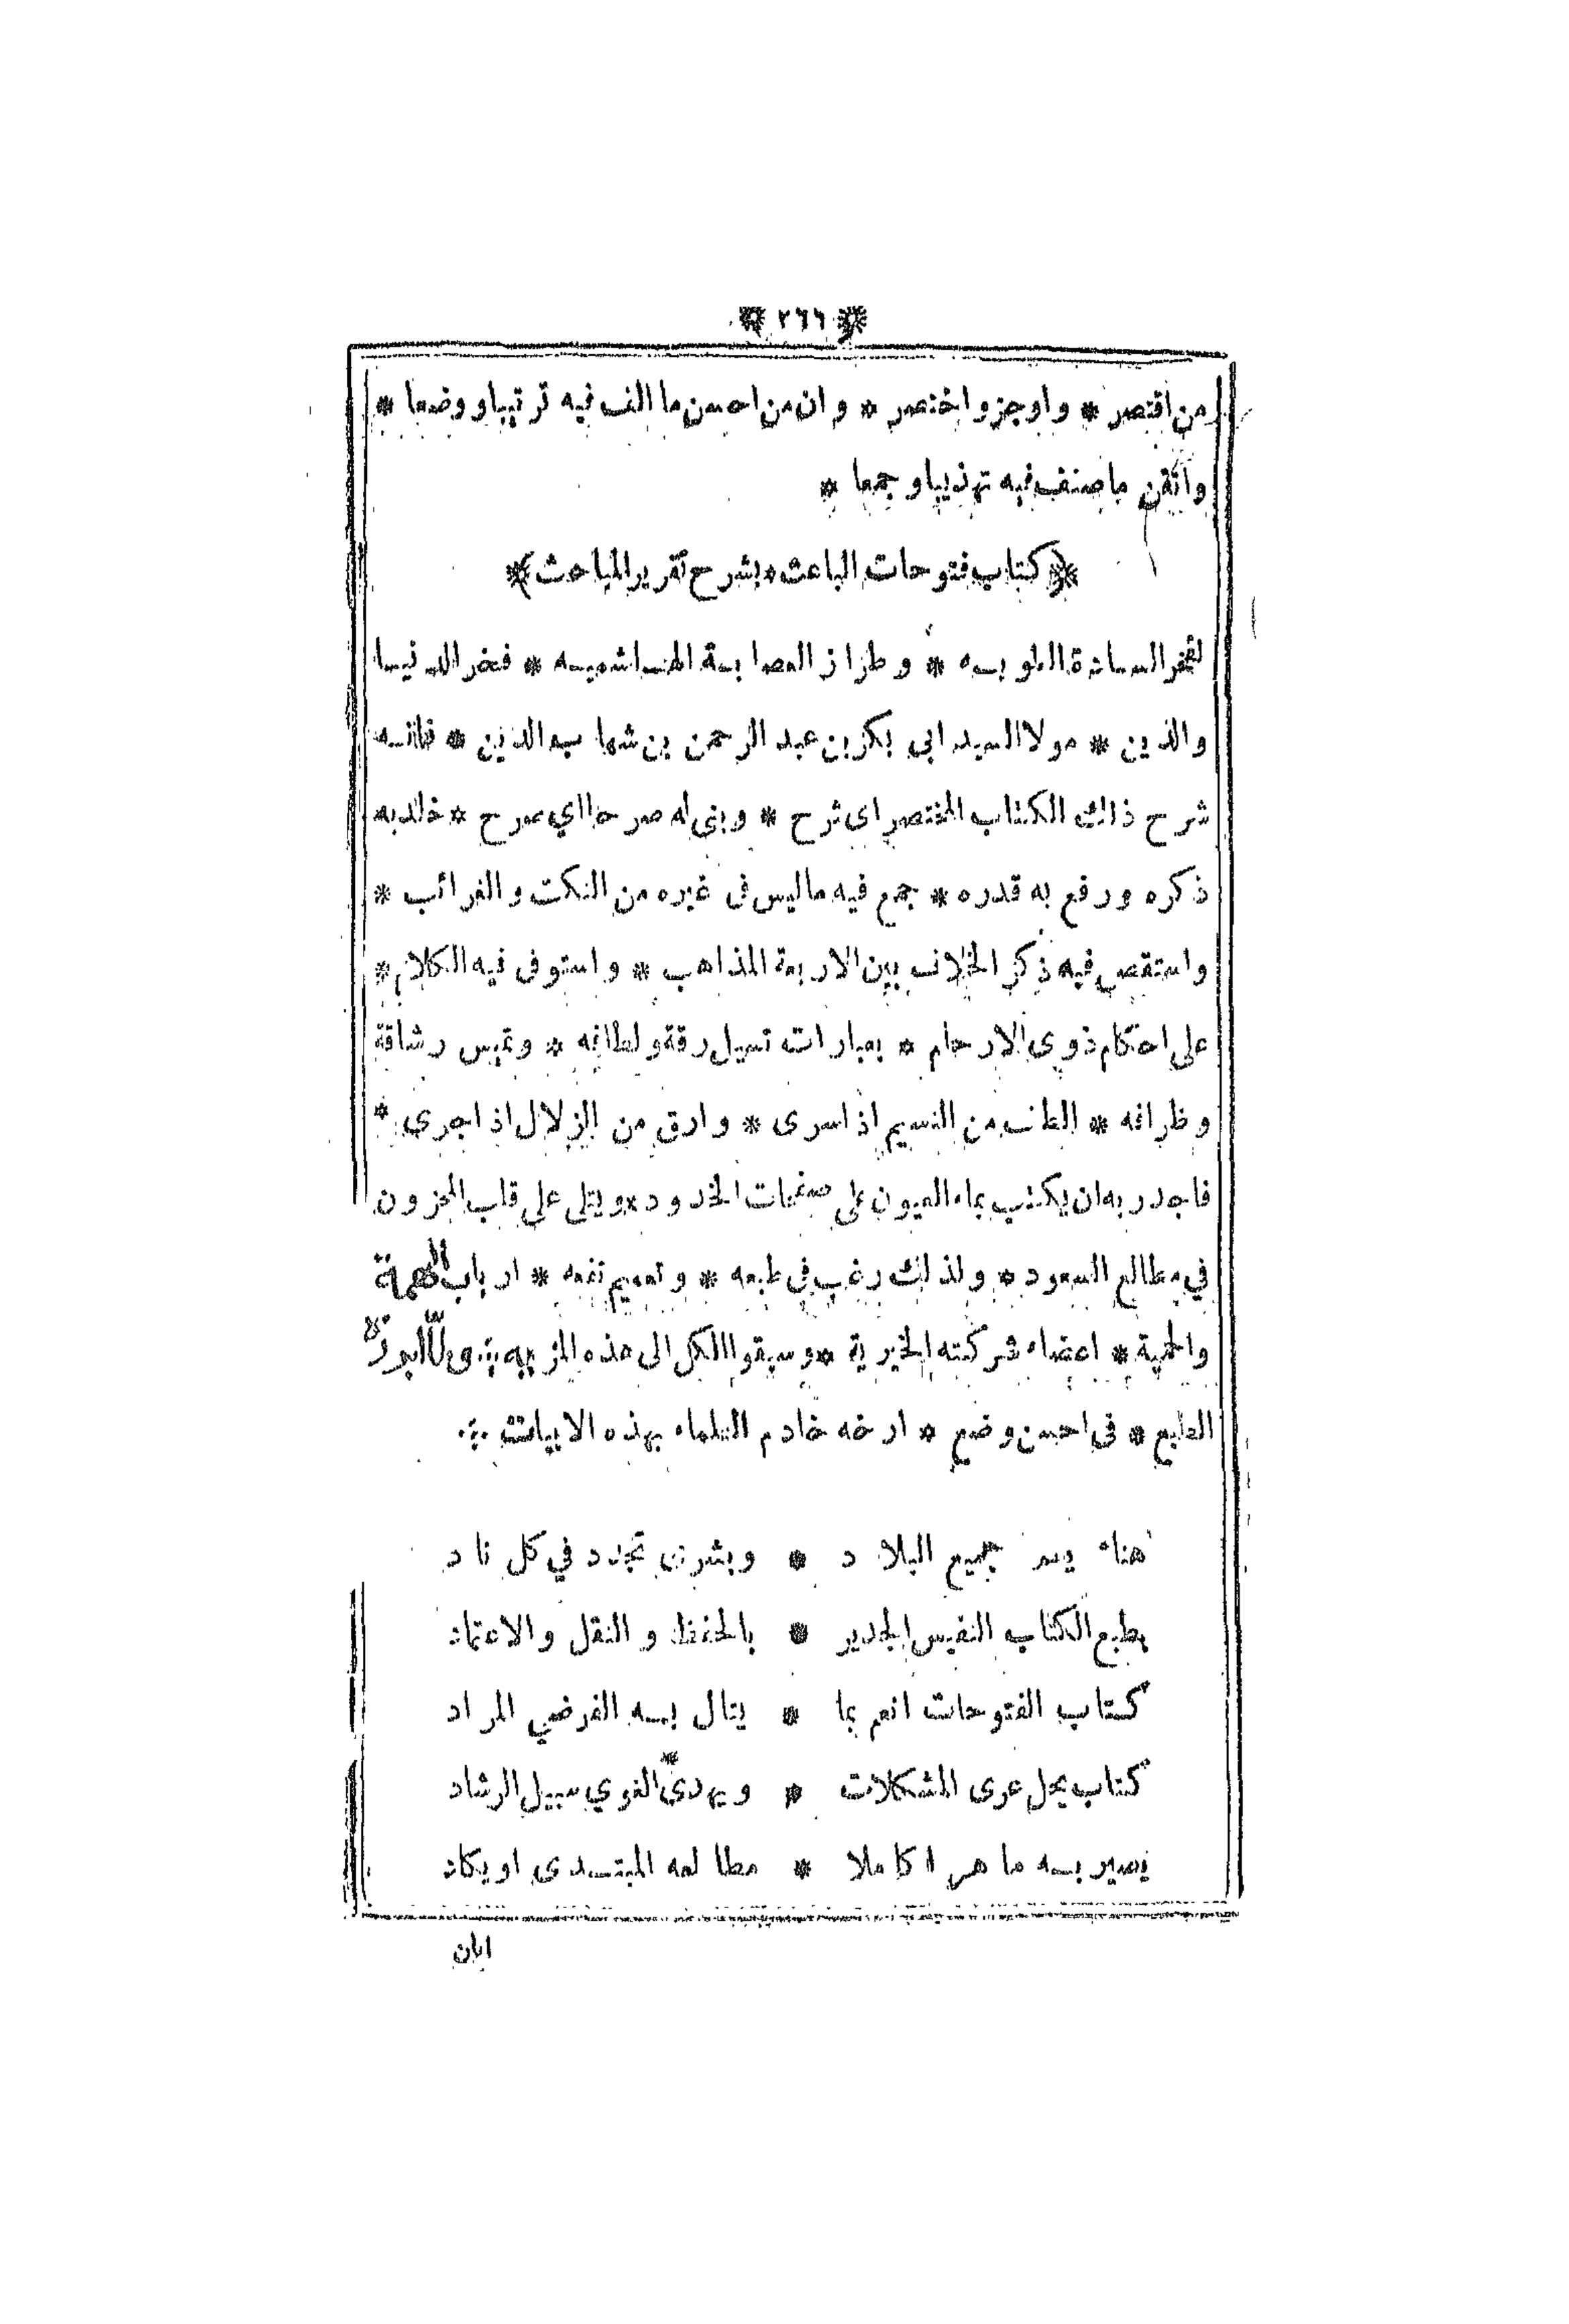 * ٢٦٦ *
من اقتصر * واوجز واختصر * وان من احسن ما الف فيه ترتيبا ووضعا *
واتقن ما صنف فيه تهذيبا وجمعا *
* (كتاب فتوحات الباعث * بشرح تقرير المباحث) *
لفخر السادة العلويه * وطراز العصابة الهاشميه * فخر الدنيا
والدين * مولا السيد ابي بكر بن عبد الرحمن بن شهاب الدين * فانه
شرح ذلك الكتاب المختصر اى شرح * وبنى له صرحا اي صرح * خلد به
ذكره ورفع به قدره * جمع فيه ما ليس فى غيره من النكت والغرائب *
واستقص فيه ذكر الخلاف بين الاربعة المذاهب * واستوفى فيه الكلام *
على احكام ذوى الارحام * بعبارات تسيل رقة ولطافه * وتميس رشاقة
وظرافه * الطف من النسيم اذا سرى * وارق من الزلال اذا جرى *
فاجدر به ان يكتب بماء العيون على صفحات الخدود * ويتلى على قلب المحزون
في مطالع السعود * ولذلك رغب فى طبعه * وتعميم نفعه * ارباب الهمة
والحمية * اعضاء شركته الخيرية * وسبقوا الكل الى هذه المزيه * ولما ابرزه
الطابع * فى احسن وضع * ارخه خادم العلماء بهذه الابيات *
هناء يسر جميع البلاد * وبشرى تجدد في كل ناد
بطبع الكتاب النفيس الجدير * بالحفظ والنقل والاعتماد
كتاب الفتوحات انعم بما * ينال به الفرضي المراد
كتاب يحل عرى المشكلات * ويهدى الغوي سبيل الرشاد
يصير به ماهرا كاملا * مطالعه المبتدى او يكاد
ابان